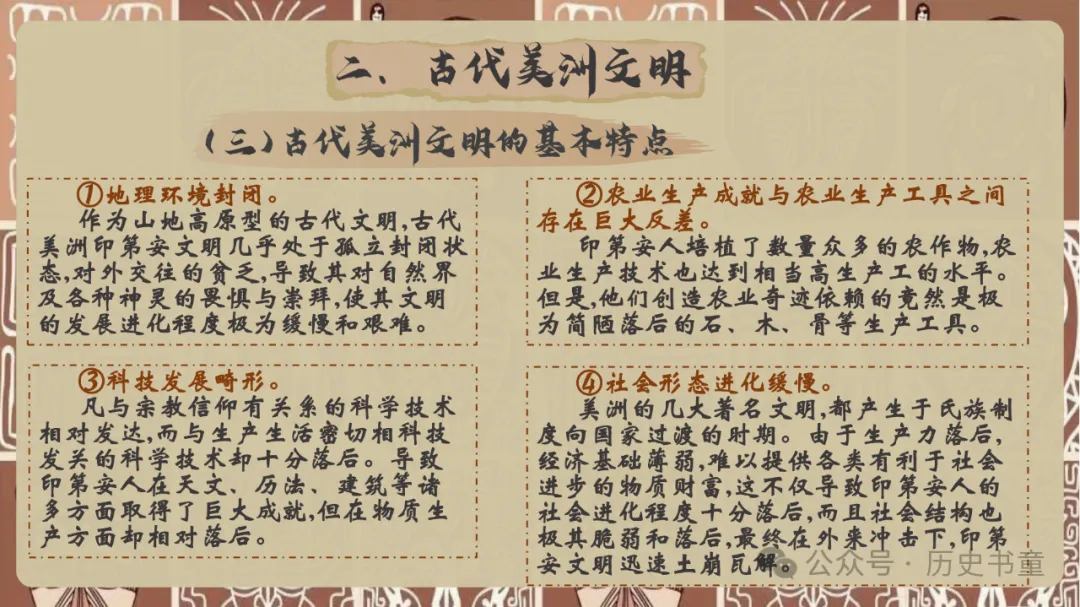 二、古代美洲文明
(三)古代美洲文明的基本特点
①地理环境封闭。
作为山地高原型的古代文明,古代
美洲印第安文明几乎处于孤立封闭状
态,对外交往的贫乏,导致其对自然界
及各种神灵的畏惧与崇拜,使其文明
的发展进化程度极为缓慢和艰难。
②农业生产成就与农业生产工具之间
存在巨大反差。
印第安人培植了数量众多的农作物,农
业生产技术也达到相当高生产工的水平。
但是,他们创造农业奇迹依赖的竟然是极
为简陋落后的石、木、骨等生产工具。
③科技发展畸形。
凡与宗教信仰有关系的科学技术
相对发达,而与生产生活密切相科技
发关的科学技术却十分落后。导致
印第安人在天文、历法、建筑等诸
多方面取得了巨大成就,但在物质生
产方面却相对落后。
④社会形态进化缓慢。
美洲的几大著名文明,都产生于氏族制
度向国家过渡的时期。由于生产力落后,
经济基础薄弱,难以提供各类有利于社会
进步的物质财富,这不仅导致印第安人的
社会进化程度十分落后,而且社会结构也
极其脆弱和落后,最终在外来冲击下,印第
安文明迅速土崩瓦解。
公众号·历史书童